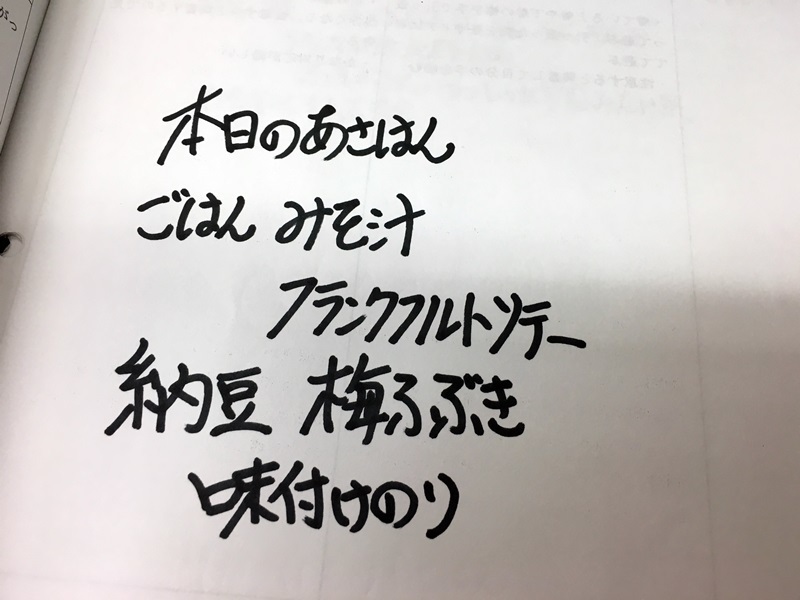 本日のあさはん
ごはん みそ汁
フランクフルトソテー
納豆 梅ふぶき
味付けのり